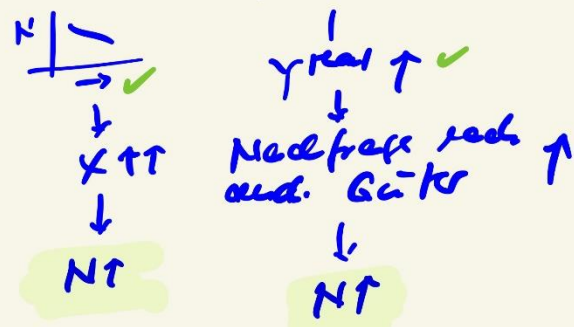 N
→ ✓
↓
X ↑↑
↓
N↑
Y real ↑ ✓
↓
Nachfrage nach ↑
and. Güter
↓
N↑